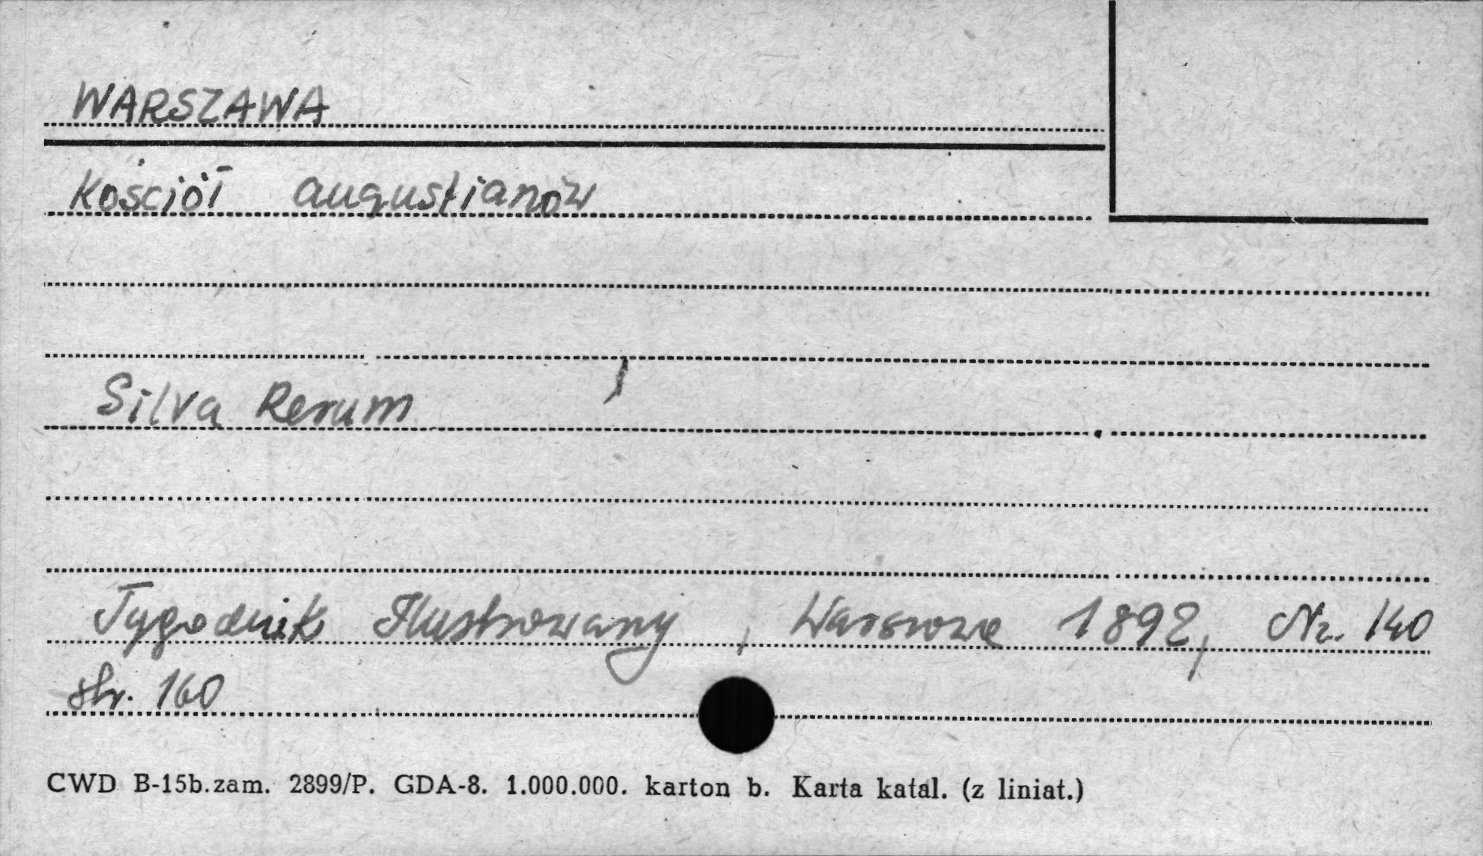 WARSZAWA
Kościół augustianów
Silva Rerum
Tygodnik Ilustrowany, Warszawa 1892, Nr. 140
str. 160
CWD B-15b.zam. 2899/P. GDA-8. 1.000.000. karton b. Karta katal. (z liniat.)